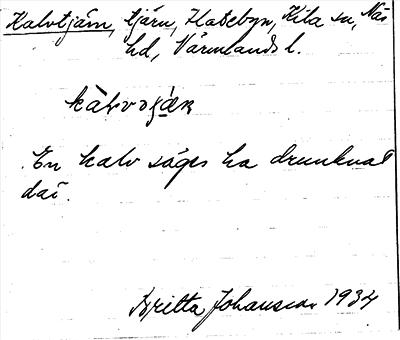 Kalvtjärn, tjärn, Slobyn, Kila sn, Näs
hd, Värmlands l.
En kalv säges ha drunknat
däri.
Britta Johansson 1934